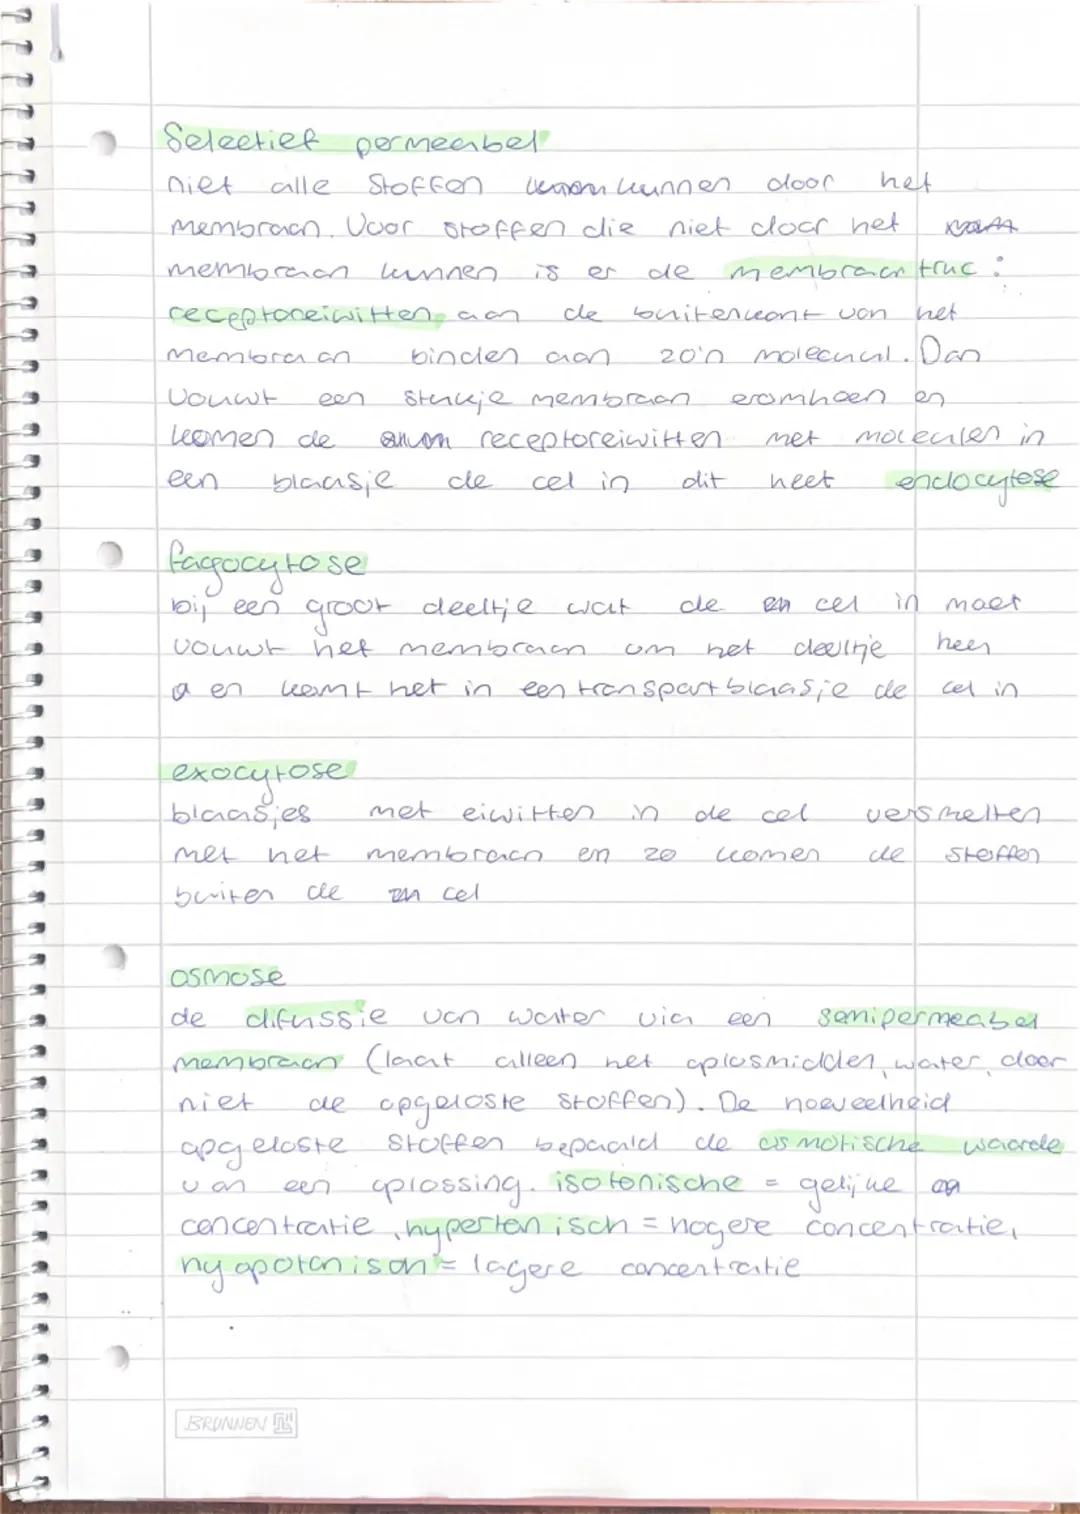 Selectief permeabel
niet alle stoffen kunnen door het
membraan. Voor stoffen die niet door het
membraan kunnen is er de membraantruc:
receptoreiwitten aan de buitenkant van het
membraan binden aan zo'n molecuul. Dan
vouwt een stukje membraan eromheen en
komen de receptoreiwitten met moleculen in
een blaasje de cel in dit heet endocytose
fagocytose
bij een groot deeltje wat de cel in moet
vouwt het membraan om het deeltje heen
en komt het in een transportblaasje de cel in
exocytose
blaasjes met eiwitten in de cel versmelten
met het membraan en zo komen de stoffen
buiten de cel
osmose
de difussie van water via een semipermeabel
membraan (laat alleen het oplosmidden, water, door
niet de opgeloste stoffen). De hoeveelheid
opgeloste stoffen bepaald de osmotische waarde
van een oplossing. isotonische = gelijke
concentratie, hypertonisch = hogere concentratie,
hypotonisch = lagere concentratie
BRUNNEN